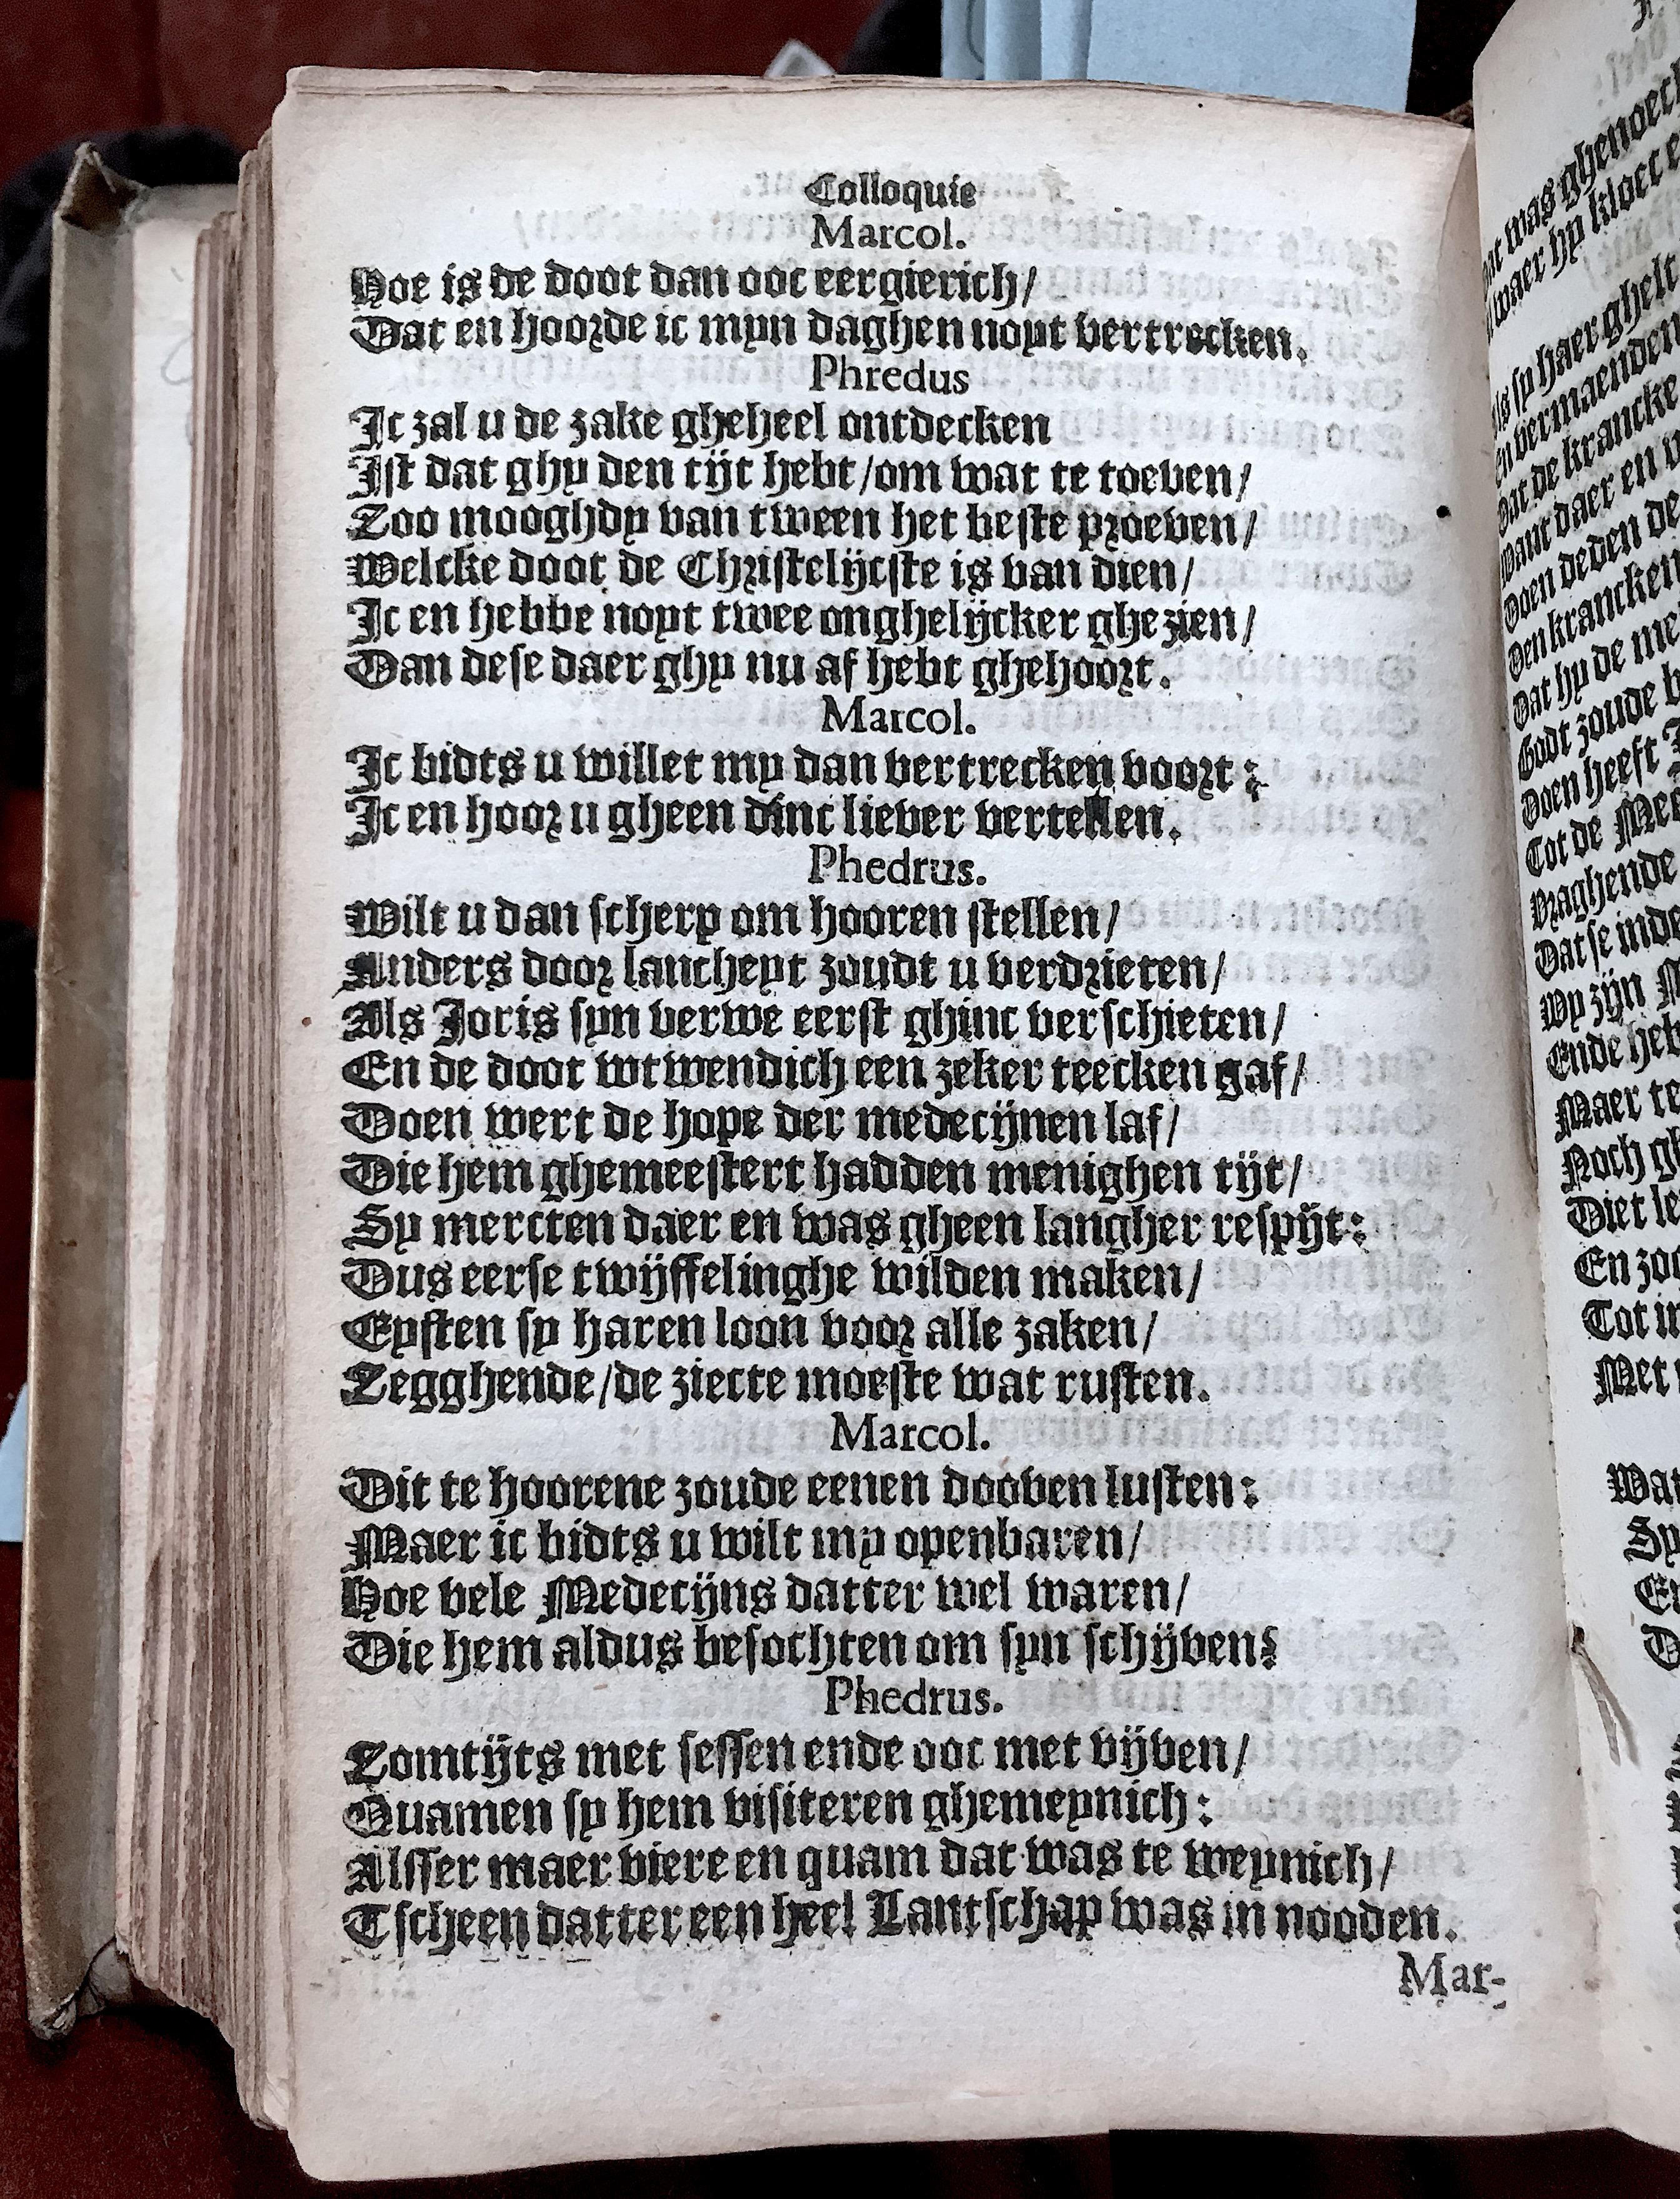 Colloquie
Marcol.
Hoe is de doot dan ooc eergierich/
Dat en hoorde ic myn daghen noyt vertrecken.
Phredus
Ic zal u de zake gheheel ontdecken
Ist dat ghy den tijt hebt/om wat te toeven/
Zoo mooghdy van tween het beste proeven/
Welcke doot de Christelijcste is van dien/
Ic en hebbe noyt twee onghelijcker ghezien/
Dan dese daer ghy nu af hebt ghehoort.
Marcol.
Ic bidts u willet my dan vertrecken voort:
Ic en hoor u gheen dinc liever vertellen.
Phedrus.
Wilt u dan scherp om hooren stellen/
Anders door lancheyt zoudt u verdrieten/
Als Joris syn verwe eerst ghinc verschieten/
En de doot wtwendich een zeker teecken gaf/
Doen wert de hope der medecijnen laf/
Die hem ghemeestert hadden menighen tijt/
Sy mercten daer en was gheen langher respijt:
Dus eerse twijffelinghe wilden maken/
Eysten sy haren loon voor alle zaken/
Zegghende/de ziecte moeste wat rusten.
Marcol.
Dit te hoorene zoude eenen dooven lusten:
Maer ic bidts u wilt my openbaren/
Hoe vele Medecijns datter wel waren/
Die hem aldus besochten om syn schijven?
Phedrus.
Zomtijts met sessen ende ooc met vijven/
Quamen sy hem visiteren ghemeynich:
Alsser maer viere en quam dat was te weynich/
Tscheen datter een heel Lantschap was in nooden.
Mar-
at was ghenoech
waer hy kloec
ls sy haer ghelt
en vermaenden
Dat de krancke
Want daer en
Doen deden de
Den krancken
Dat hy de me
Godt zoude
Doen heeft
Tot de Mee
Vraghende
Datse inde
Wy zijn
Ende heb
Maer te
Noch gh
Diet le
En zoo
Tot in
Met
Wat
Sy
En
D